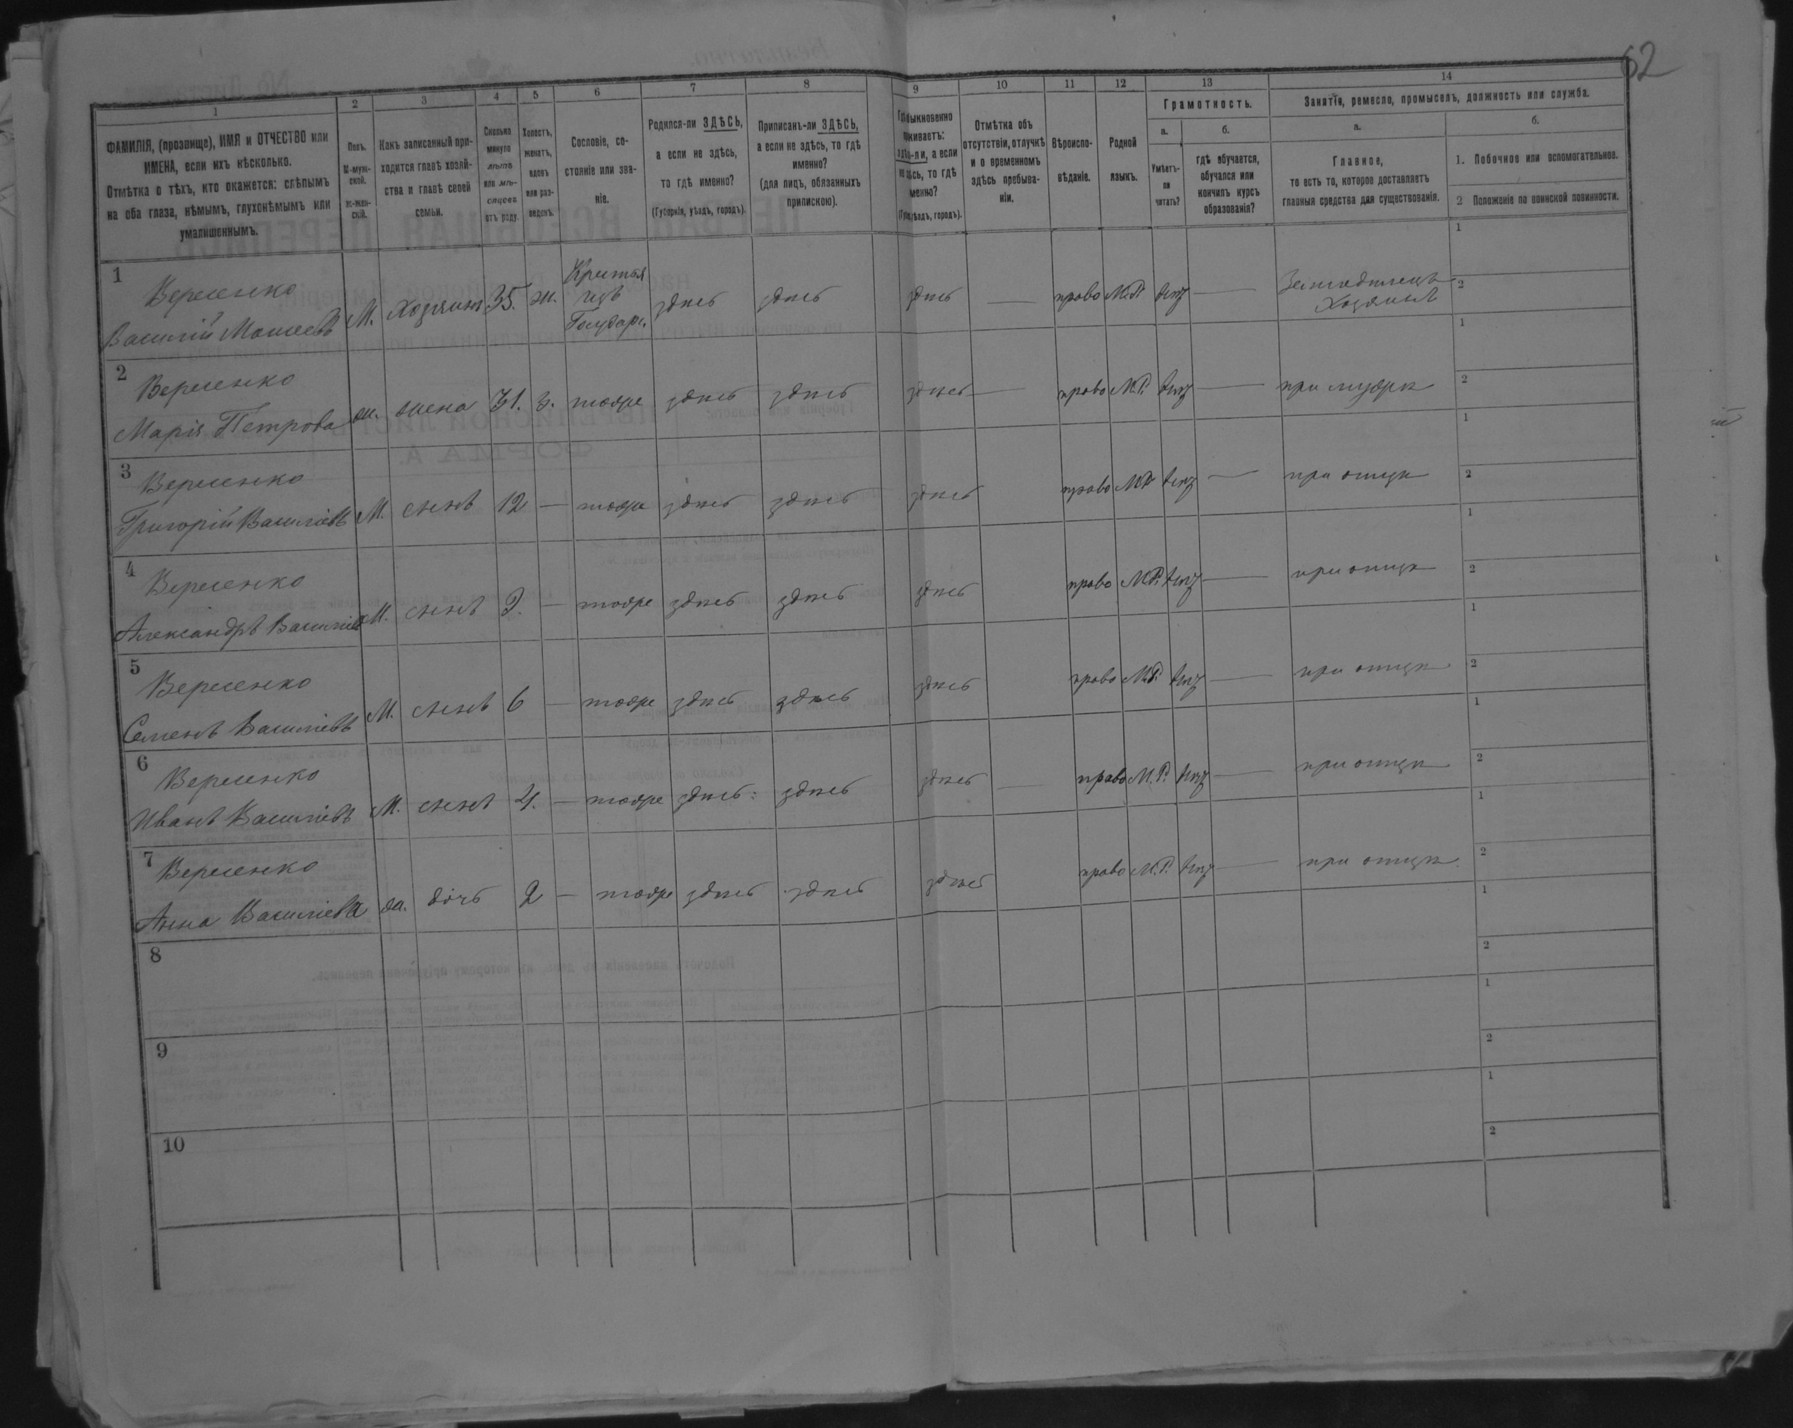 62
1 2 3 4 5 6 7 8 9 10 11 12 13 14
ФАМИЛІЯ, (прозвище), ИМЯ и ОТЧЕСТВО или
ИМЕНА, если ихъ нѣсколько.
Отмѣтка о тѣхъ, кто окажется: слѣпымъ
на оба глаза, нѣмымъ, глухонѣмымъ или
умалишеннымъ.
Полъ.
М-муж-
ской.
Ж-жен-
скій.
Какъ записанный при-
ходится главѣ хозяй-
ства и главѣ своей
семьи.
Сколько
минуло
лѣтъ
или мѣ-
сяцевъ
отъ роду.
Холостъ,
женатъ,
вдовъ
или раз-
веденъ.
Сословіе, со-
стояніе или зва-
ніе.
Родился-ли ЗДѢСЬ,
а если не здѣсь,
то гдѣ именно?
(Губернія, уѣздъ, городъ).
Приписанъ-ли ЗДѢСЬ,
а если не здѣсь, то гдѣ
именно?
(для лицъ, обязанныхъ
припискою).
обыкновенно
проживаетъ:
здѣсь-ли, а если
не здѣсь, то гдѣ
именно?
(Губ., уѣздъ, городъ).
Отмѣтка объ
отсутствіи, отлучкѣ
и о временномъ
здѣсь пребыва-
ніи.
Вѣроиспо-
вѣданіе.
Родной
языкъ.
Грамотность.
а.
Умѣетъ-
ли
читать?
б.
гдѣ обучается,
обучался или
кончилъ курсъ
образованія?
Занятія, ремесло, промыселъ, должность или служба.
а.
Главное,
то есть то, которое доставляетъ
главныя средства для существованія.
б.
1. Побочное или вспомогательное.
2 Положеніе по воинской повинности.
1 Вересенко
Василій Моисеевъ М. хозяинъ 35. ж. Крестья изъ Государ. здѣсь здѣсь здѣсь — право М.Р. нѣтъ — Земледѣлецъ Хозяинъ 1 2
2 Вересенко
Марія Петрова ж. жена 31. з. тоже здѣсь здѣсь здѣсь — право М.Р. нѣтъ — при мужѣ 1 2
3 Вересенко
Григорій Васильевъ М. сынъ 12 — тоже здѣсь здѣсь здѣсь право М.Р. нѣтъ — при отцѣ 1 2
4 Вересенко
Александръ Васильев М. сынъ 9. — тоже здѣсь здѣсь здѣсь право М.Р. нѣтъ — при отцѣ 1 2
5 Вересенко
Семенъ Васильевъ М. сынъ 6 — тоже здѣсь здѣсь здѣсь право М.Р. нѣтъ — при отцѣ 1 2
6 Вересенко
Иванъ Васильевъ М. сынъ 4. — тоже здѣсь здѣсь здѣсь — право М.Р. нѣтъ — при отцѣ 1 2
7 Вересенко
Анна Васильева ж. дочь 2 — тоже здѣсь здѣсь здѣсь право М.Р. нѣтъ — при отцѣ 1 2
8 1 2
9 1 2
10 1 2